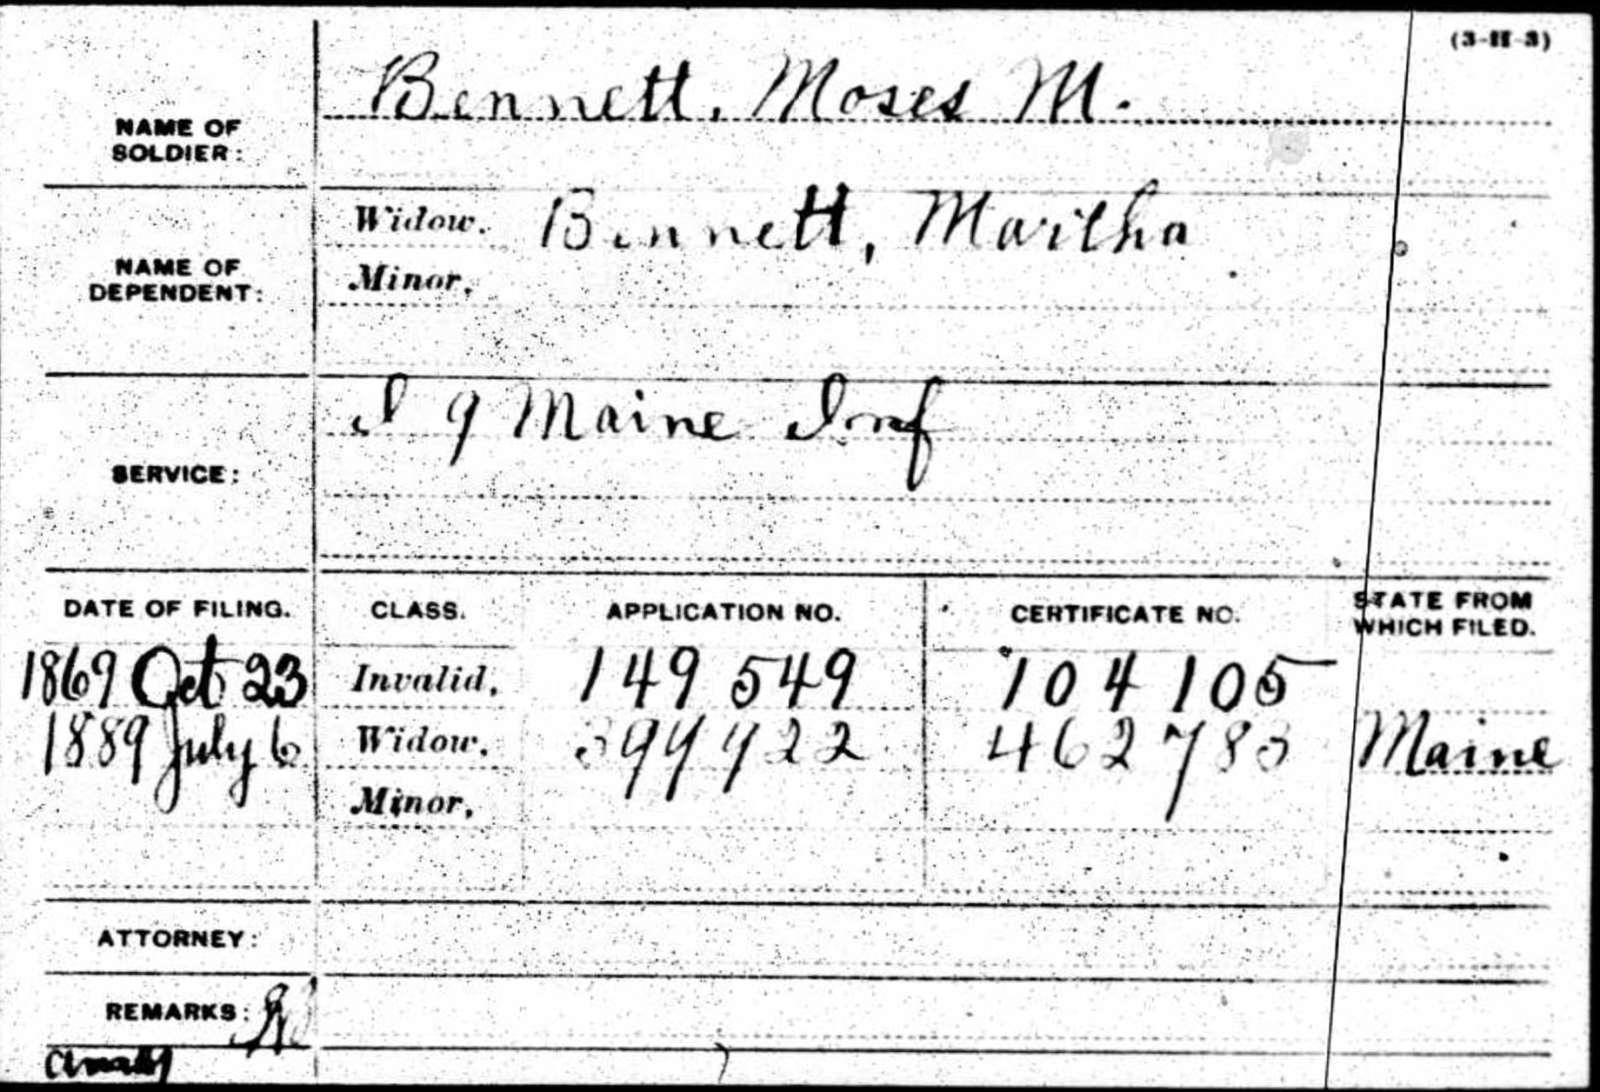 (3-II-3)
NAME OF SOLDIER: Bennett, Moses M.
NAME OF DEPENDENT: Widow. Bennett, Martha
Minor,
SERVICE: I 9 Maine Inf
DATE OF FILING. CLASS. APPLICATION NO. CERTIFICATE NO. STATE FROM WHICH FILED.
1869 Oct 23 Invalid, 149 549 104 105
1889 July 6 Widow, 462 783 Maine
Minor,
ATTORNEY:
REMARKS: